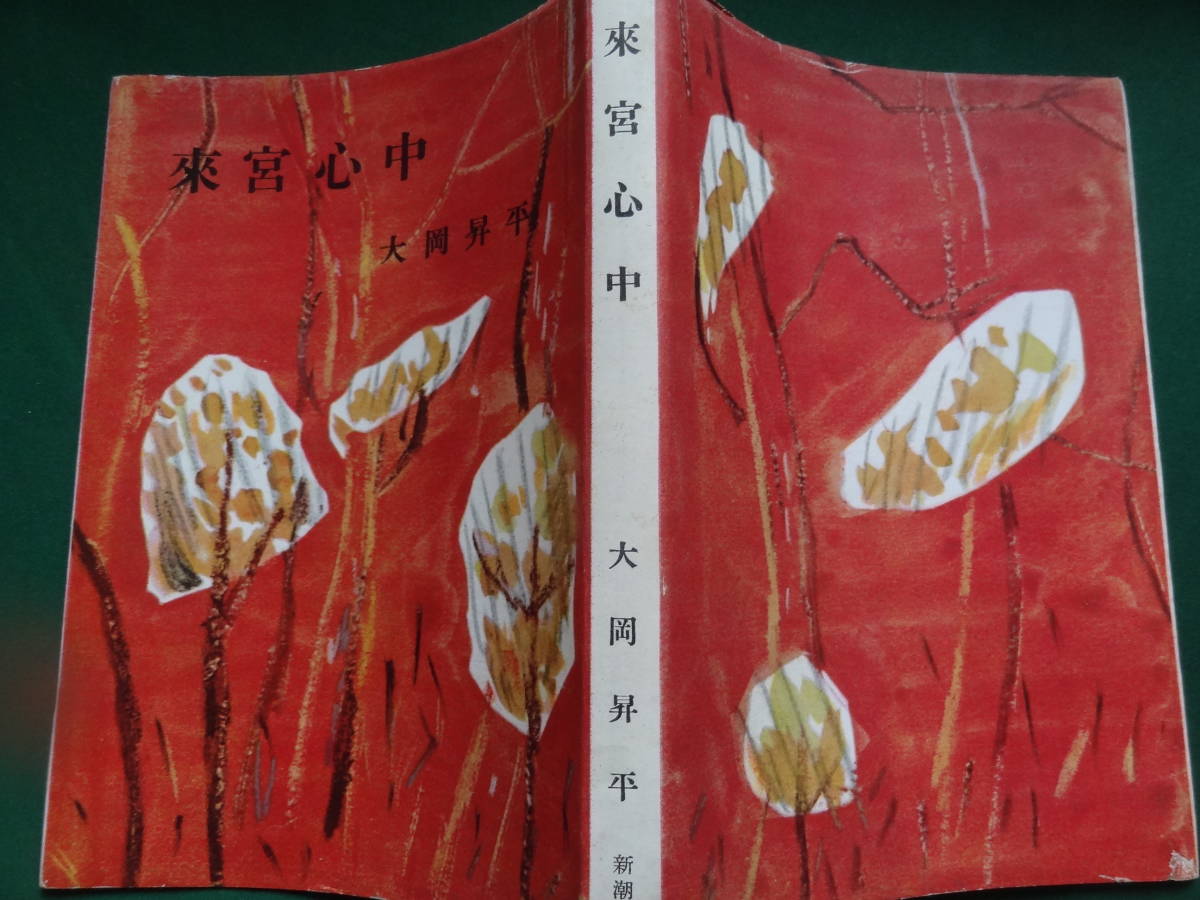 來宮心中
大岡昇平
來宮心中
大岡昇平
新潮